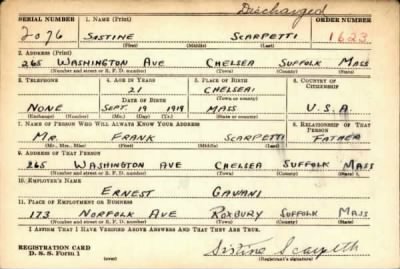 Discharged
SERIAL NUMBER 1. NAME (Print) ORDER NUMBER
2076 SOSTINE SCARPETTI 1623
(First) (Middle) (Last)
2. ADDRESS (Print)
265 WASHINGTON AVE CHELSEA SUFFOLK MASS
(Number and street or R. F. D. number) (Town) (County) (State)
3. TELEPHONE 4. AGE IN YEARS 5. PLACE OF BIRTH 6. COUNTRY OF CITIZENSHIP
21 CHELSEA
DATE OF BIRTH (Town or county)
NONE SEPT. 19 1919 MASS U.S.A.
(Exchange) (No.) (Mo.) (Day) (Yr.) (State or country)
7. NAME OF PERSON WHO WILL ALWAYS KNOW YOUR ADDRESS 8. RELATIONSHIP OF THAT PERSON
MR. FRANK SCARPETTI FATHER
(Mr., Mrs., Miss) (First) (Middle) (Last)
9. ADDRESS OF THAT PERSON
265 WASHINGTON AVE CHELSEA SUFFOLK MASS
(Number and street or R. F. D. number) (Town) (County) (State)
10. EMPLOYER'S NAME
ERNEST GAVANI
11. PLACE OF EMPLOYMENT OR BUSINESS
173 NORFOLK AVE ROXBURY SUFFOLK MASS
(Number and street or R. F. D. number) (Town) (County) (State)
I AFFIRM THAT I HAVE VERIFIED ABOVE ANSWERS AND THAT THEY ARE TRUE.
REGISTRATION CARD
D. S. S. Form 1
(over)
Sistine Scarpetti
(Registrant's signature)